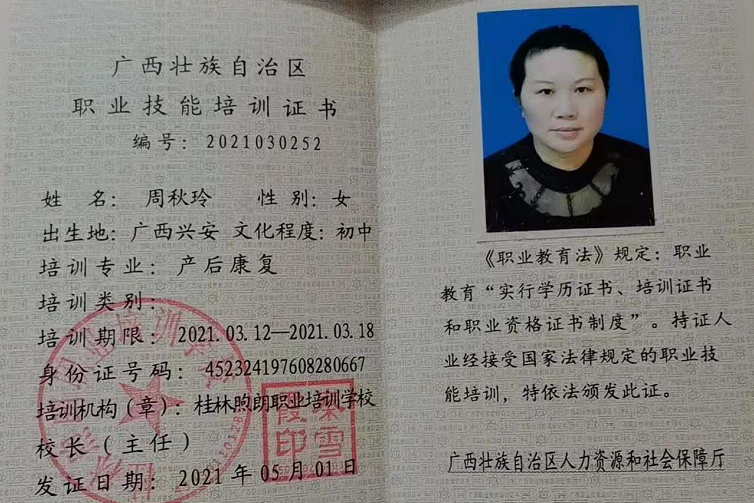 广西壮族自治区
职业技能培训证书
编号：2021030252
姓 名：周秋玲 性 别：女
出生地：广西兴安 文化程度：初中
培训专业：产后康复
培训类别：
培训期限：2021.03.12—2021.03.18
身份证号码：452324197608280667
培训机构（章）：桂林煦朗职业培训学校
校长（主任）
发证日期：2021年05月01日
《职业教育法》规定：职业
教育“实行学历证书、培训证书
和职业资格证书制度”。持证人
业经接受国家法律规定的职业技
能培训，特依法颁发此证。
广西壮族自治区人力资源和社会保障厅